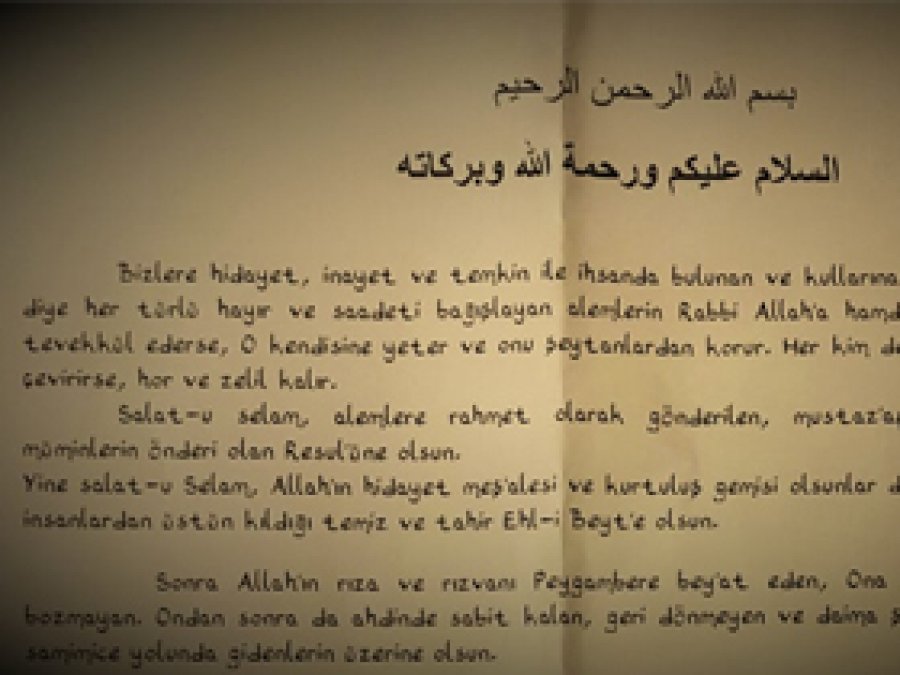 بسم الله الرحمن الرحيم
السلام عليكم ورحمة الله وبركاته
Bizlere hidayet, inayet ve temkin ile ihsanda bulunan ve kullarına
diye her türlü hayır ve saadeti bağışlayan alemlerin Rabbi Allah'a hamd
tevekkül ederse, O kendisine yeter ve onu şeytanlardan korur. Her kim de
çevirirse, hor ve zelil kalır.
Salat-u selam, alemlere rahmet olarak gönderilen,
müminlerin önderi olan Resul'üne olsun.
Yine salat-u Selam, Allah'ın hidayet meş'alesi ve kurtuluş gemisi olsunlar
insanlardan üstün kıldığı temiz ve tahir Ehl-i Beyt'e olsun.
Sonra Allah'ın rıza ve rızvanı Peygambere bey'at eden, Ona
bozmayan. Ondan sonra da ahdinde sabit kalan, geri dönmeyen ve daima
samimice yolunda gidenlerin üzerine olsun.